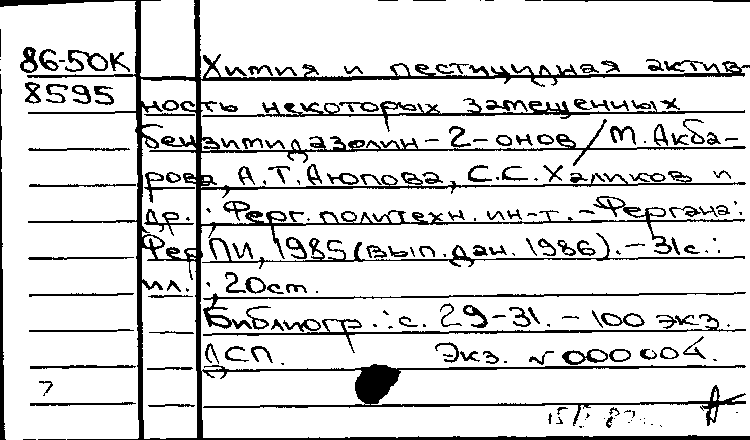 86-50К Хития и пестицидная актив-
8595 ность некоторых замещенных
бензимидазолин-2-онов/М.Акба-
рова, А.Т.Аюпова, С.С.Халиков и
др.; Ферг. политехн. ин-т.-Фергана:
ФерПИ, 1985(вып.дан. 1986).-31с.:
ил.; 20см.
Библиогр.: с. 29-31. - 100 экз.
ДСП. Экз. №000004.
7